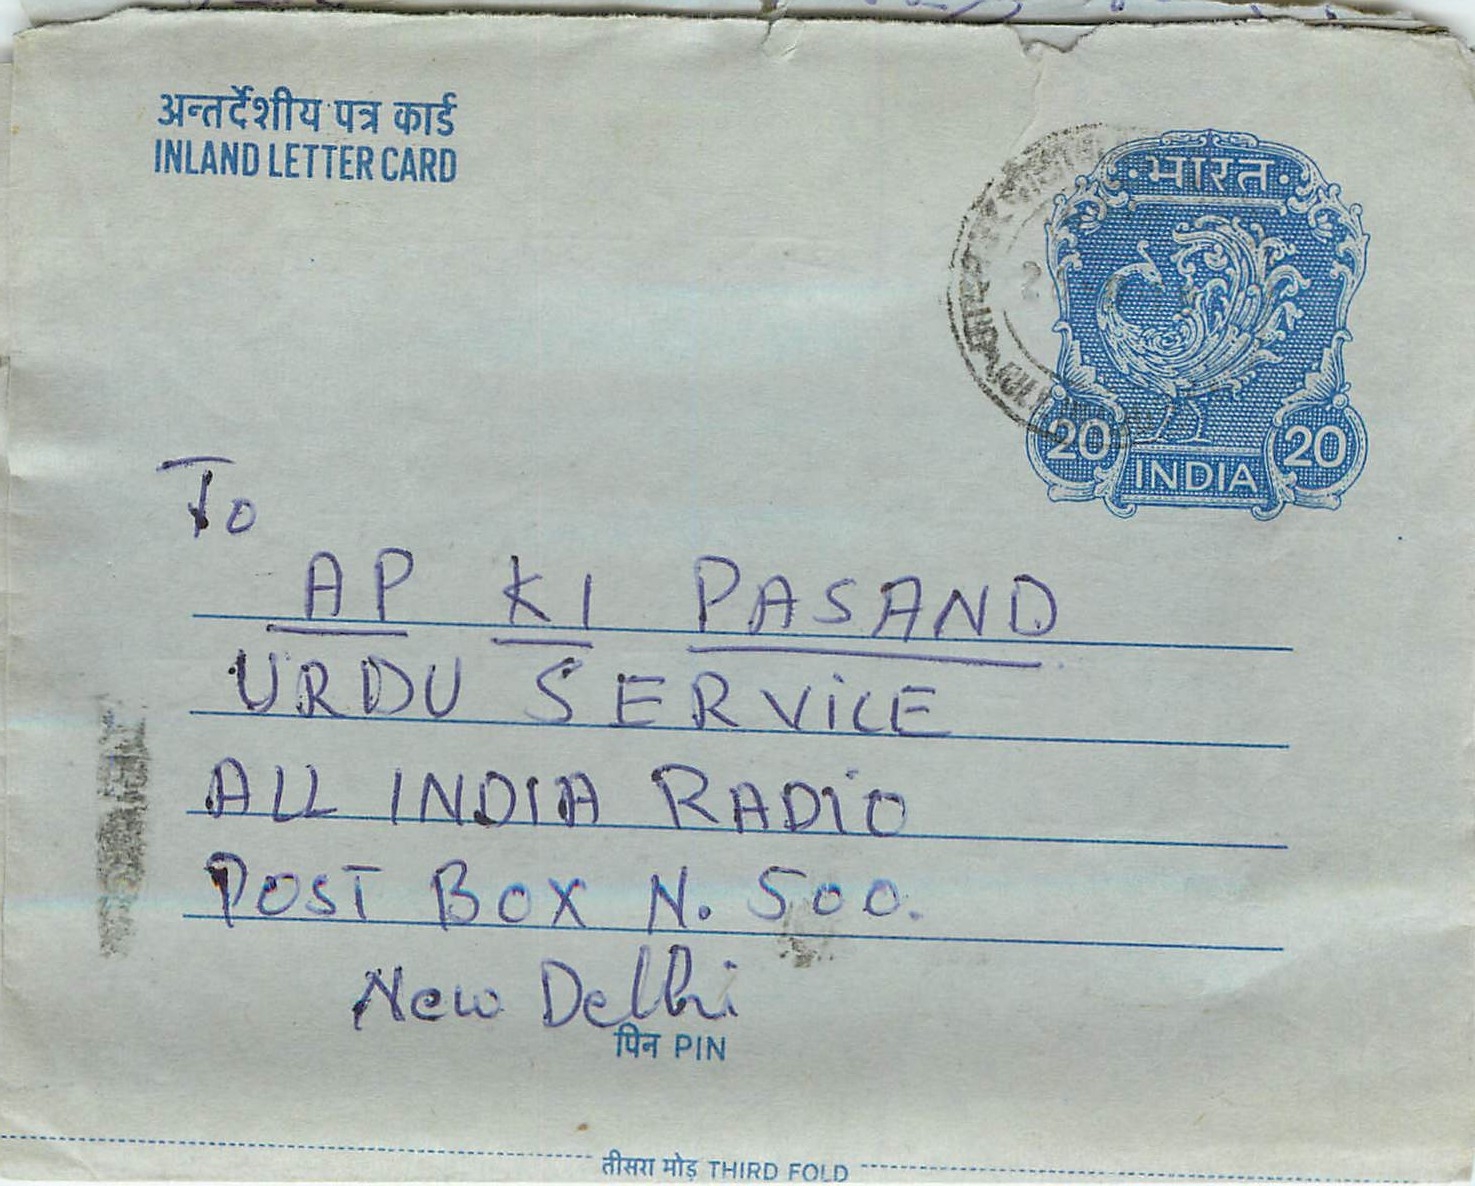 अन्तर्देशीय पत्र कार्ड
INLAND LETTER CARD
भारत
20 20
INDIA
To
AP KI PASAND
URDU SERVICE
ALL INDIA RADIO
POST BOX N. 500.
New Delhi
पिन PIN
तीसरा मोड़ THIRD FOLD